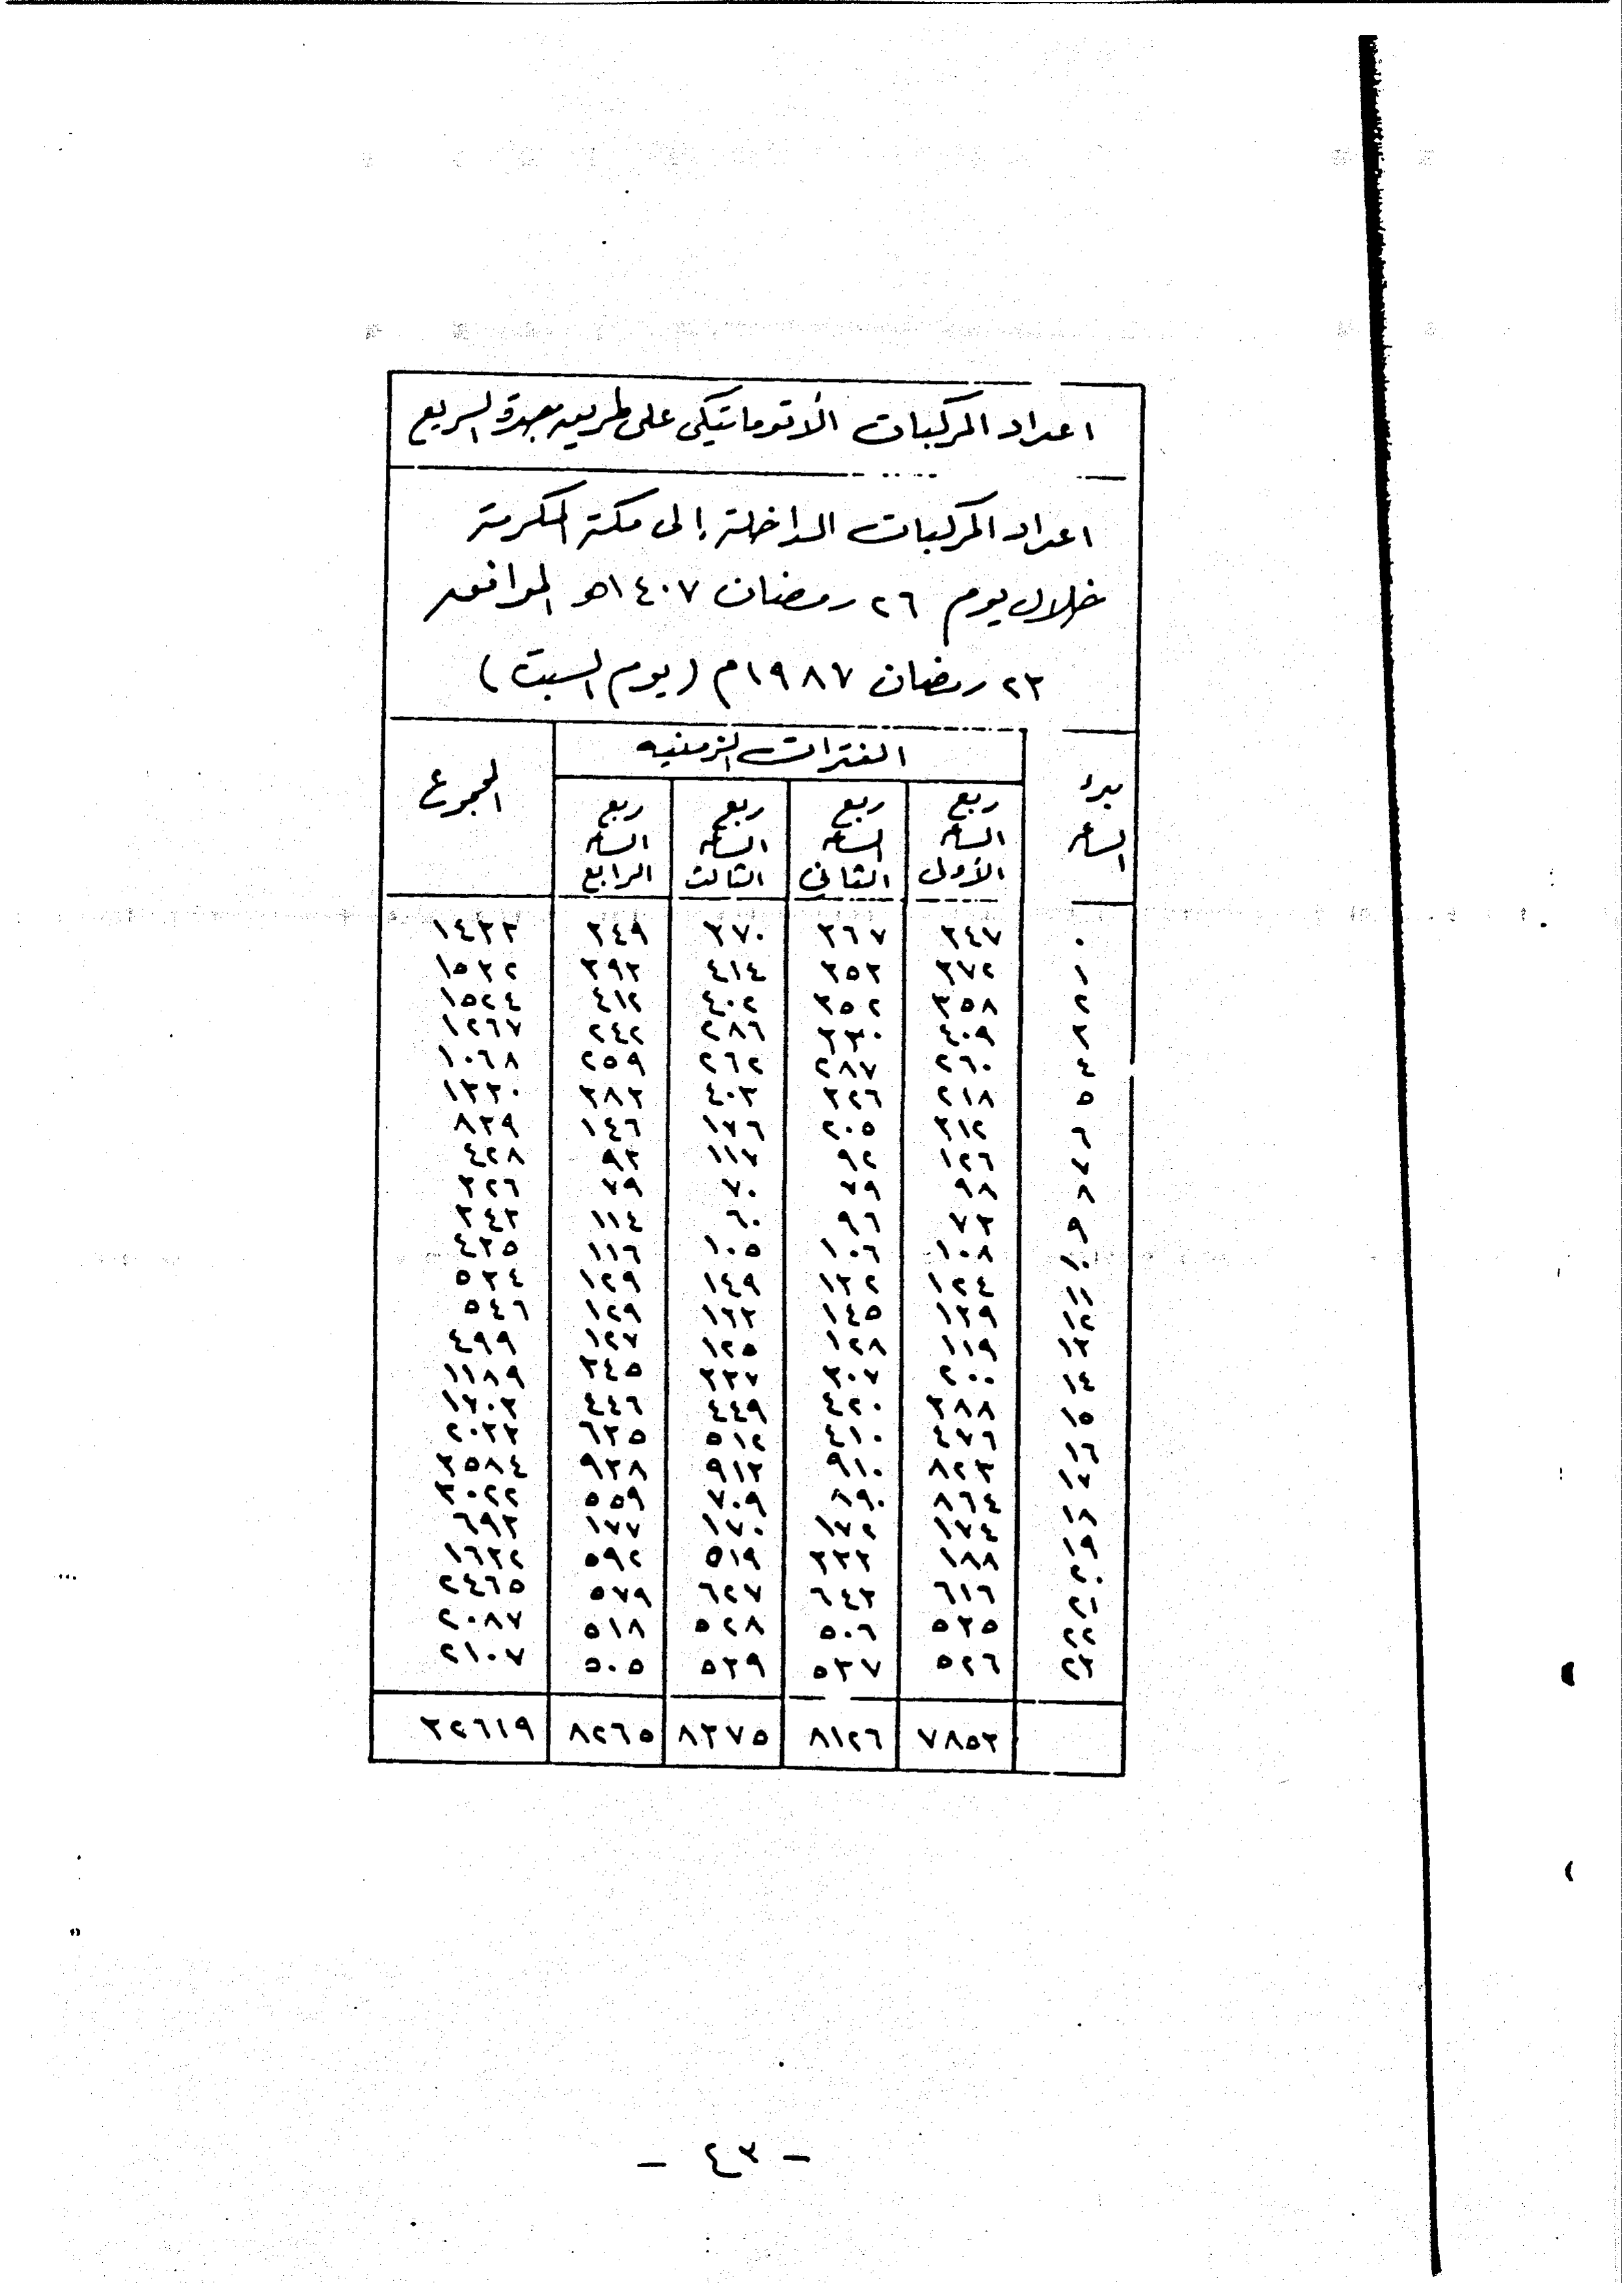 اعداد المركبات الأتوماتيكى على طريق جدة السريع
اعداد المركبات الداخلة إلى مكة المكرمة
خلال يوم ٢٦ رمضان ١٤٠٧هـ الموافق
٢٣ رمضان ١٩٨٧م (يوم السبت)
بدء الساعه
الفترات الزمنيه
المجموع
ربع الساعه الأولى
ربع الساعه الثانى
ربع الساعه الثالث
ربع الساعه الرابع
٠ ٣٤٧ ٣٦٧ ٣٧٠ ٣٤٩ ١٤٣٣
١ ٣٧٢ ٣٥٣ ٤١٤ ٣٩٣ ١٥٣٢
٢ ٣٥٨ ٣٥٢ ٤٠٢ ٤١٢ ١٥٢٤
٣ ٤٠٩ ٣٣٠ ٢٨٦ ٢٤٢ ١٢٦٧
٤ ٢٦٠ ٢٨٧ ٢٦٢ ٢٥٩ ١٠٦٨
٥ ٢١٨ ٣٢٦ ٤٠٣ ٣٨٣ ١٣٣٠
٦ ٣١٢ ٢٠٥ ١٧٦ ١٤٦ ٨٣٩
٧ ١٢٦ ٩٢ ١١٧ ٩٣ ٤٢٨
٨ ٩٨ ٧٩ ٧٠ ٧٩ ٣٢٦
٩ ٧٣ ٩٦ ٦٠ ١١٤ ٣٤٣
١٠ ١٠٨ ١٠٦ ١٠٥ ١١٦ ٤٣٥
١١ ١٢٤ ١٣٢ ١٤٩ ١٢٩ ٥٣٤
١٢ ١٣٩ ١٤٥ ١٣٣ ١٢٩ ٥٤٦
١٣ ١١٩ ١٢٨ ١٢٥ ١٢٧ ٤٩٩
١٤ ٢٠٠ ٣٠٧ ٣٣٧ ٣٤٥ ١١٨٩
١٥ ٣٨٨ ٤٢٠ ٤٤٩ ٤٤٦ ١٧٠٣
١٦ ٤٧٦ ٤١٠ ٥١٢ ٦٣٥ ٢٠٣٣
١٧ ٨٢٣ ٩١٠ ٩١٣ ٩٣٨ ٣٥٨٤
١٨ ٨٦٤ ٨٩٠ ٧٠٩ ٥٥٩ ٣٠٢٢
١٩ ١٧٤ ١٧٢ ١٧٠ ١٧٧ ٦٩٣
٢٠ ١٨٨ ٣٣٣ ٥١٩ ٥٩٢ ١٦٣٢
٢١ ٦١٦ ٦٤٣ ٦٢٧ ٥٧٩ ٢٤٦٥
٢٢ ٥٣٥ ٥٠٦ ٥٢٨ ٥١٨ ٢٠٨٧
٢٣ ٥٢٦ ٥٣٧ ٥٣٩ ٥٠٥ ٢١٠٧
٧٨٥٣ ٨١٢٦ ٨٣٧٥ ٨٢٦٥ ٣٢٦١٩
- ٤٣ -